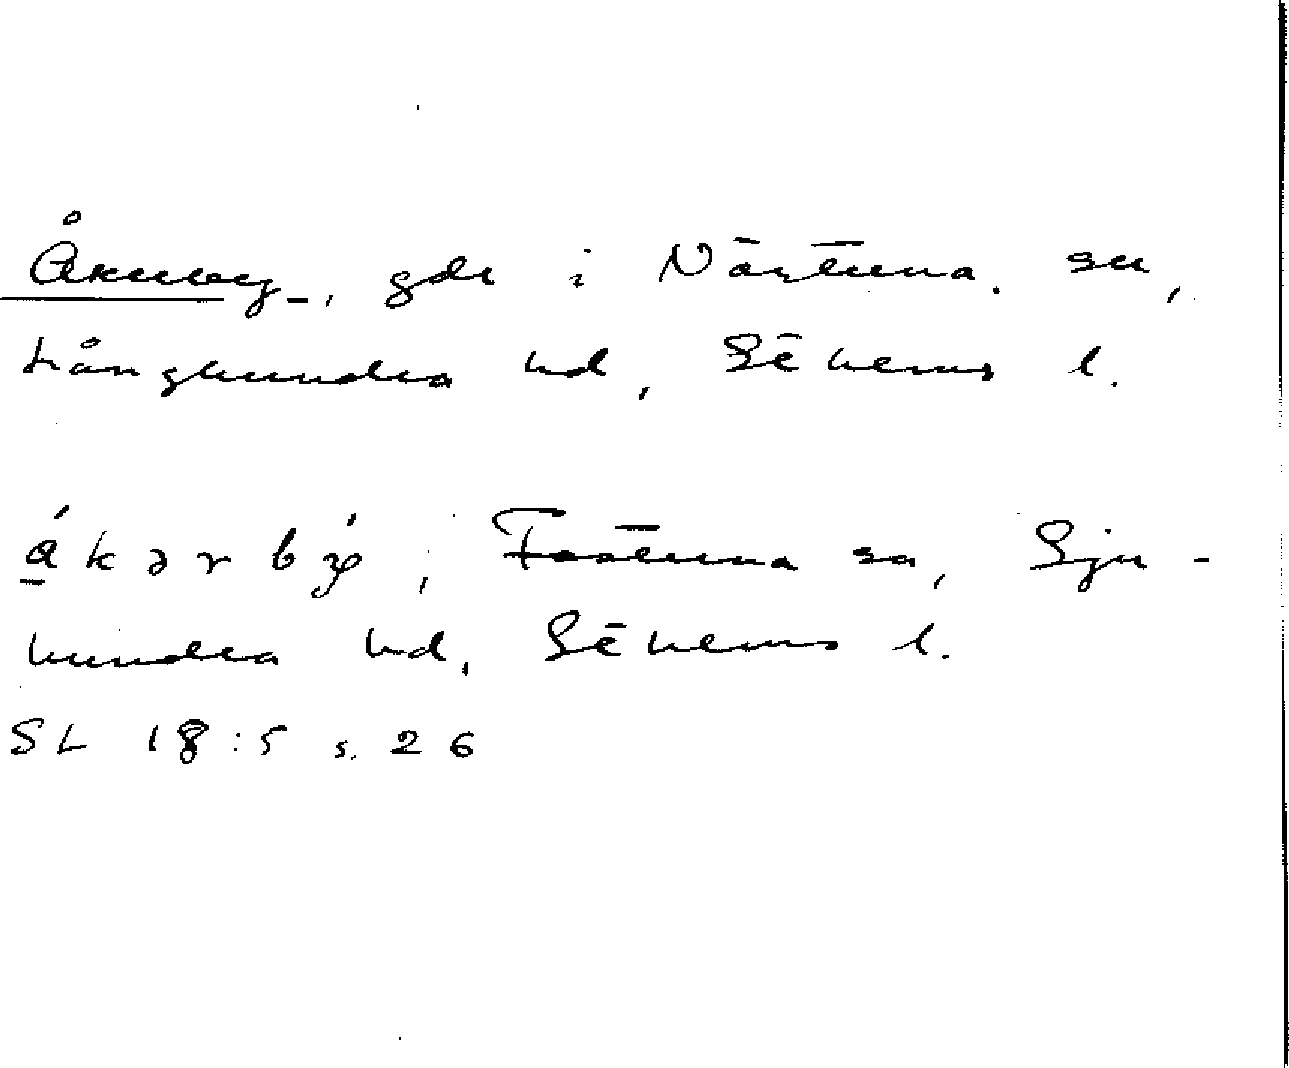 Åkerby, gdr i Närtuna sn,
Långhundra hd, Sthlms l.
åkərbý, Frötuna sn, Sju-
hundra hd, Sthlms l.
SL 18:5 s. 26